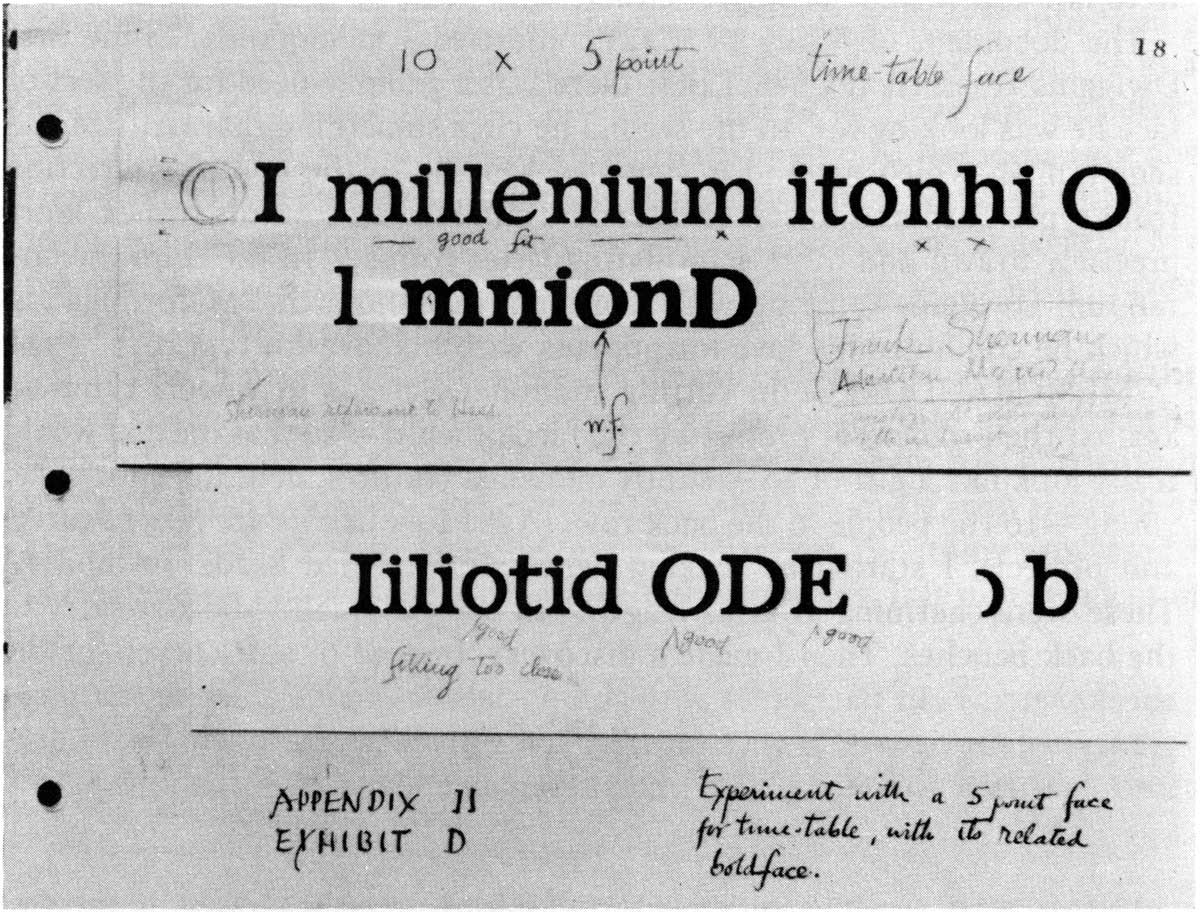 18.
10 x 5 point time-table face
I millenium itonhi O
good fit
x x x
l mnionD
Frank Sherman
w.f.
Iiliotid ODE b
good good good
fitting too close
APPENDIX II
EXHIBIT D
Experiment with a 5 point face
for time-table, with its related
boldface.